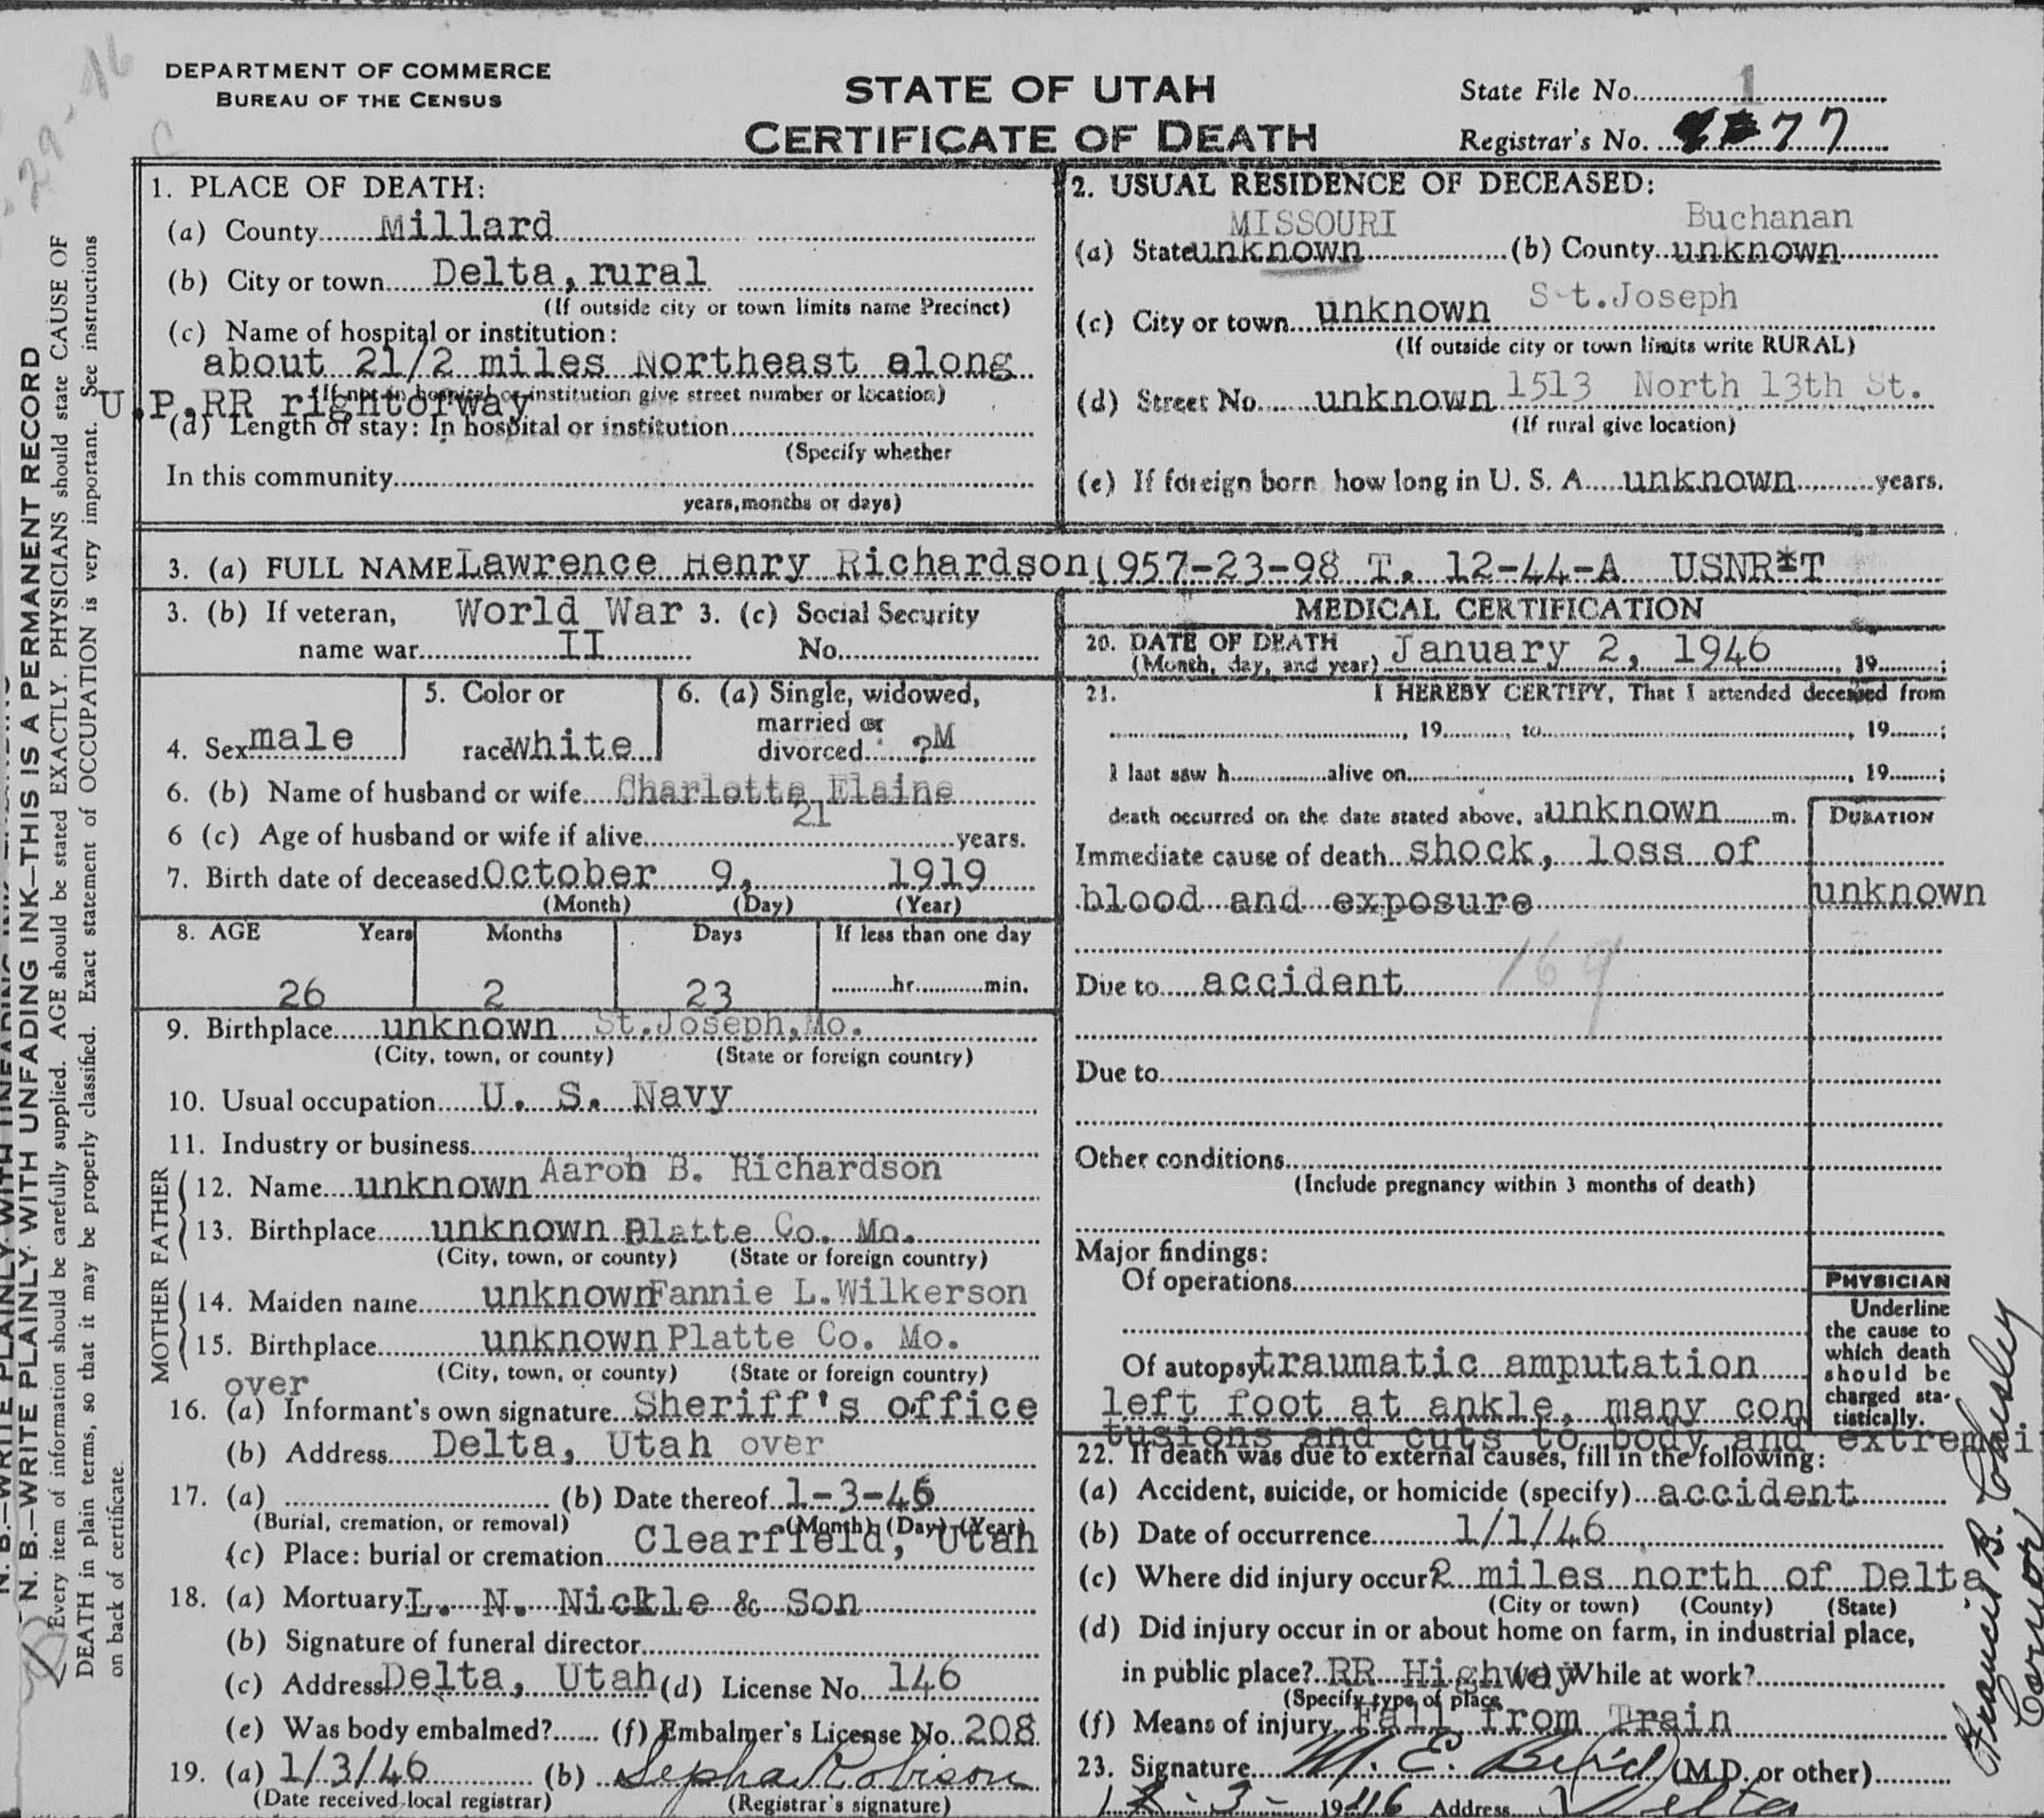 DEPARTMENT OF COMMERCE
BUREAU OF THE CENSUS
STATE OF UTAH
CERTIFICATE OF DEATH
State File No. 1
Registrar's No. 77
29-46
C
N. B.—WRITE PLAINLY WITH UNFADING INK—THIS IS A PERMANENT RECORD
Every item of information should be carefully supplied. AGE should be stated EXACTLY. PHYSICIANS should state CAUSE OF
DEATH in plain terms, so that it may be properly classified. Exact statement of OCCUPATION is very important. See instructions
on back of certificate.
1. PLACE OF DEATH:
(a) County Millard
(b) City or town Delta, rural
(If outside city or town limits name Precinct)
(c) Name of hospital or institution:
about 21/2 miles Northeast along
(If not in hospital or institution give street number or location)
U.P.RR rightofway
(d) Length of stay: In hospital or institution
(Specify whether
In this community
years, months or days)
2. USUAL RESIDENCE OF DECEASED:
MISSOURI Buchanan
(a) State unknown (b) County unknown
(c) City or town unknown St.Joseph
(If outside city or town limits write RURAL)
(d) Street No. unknown 1513 North 13th St.
(If rural give location)
(e) If foreign born how long in U. S. A. unknown years.
3. (a) FULL NAME Lawrence Henry Richardson (957-23-98 T. 12-44-A USNR*T
3. (b) If veteran, World War 3. (c) Social Security
name war II No.
4. Sex male
5. Color or
race white
6. (a) Single, widowed,
married or
divorced ?M
6. (b) Name of husband or wife Charlotte Elaine
21
6 (c) Age of husband or wife if alive years.
7. Birth date of deceased October 9, 1919
(Month) (Day) (Year)
8. AGE Years Months Days If less than one day
26 2 23 hr. min.
9. Birthplace unknown St.Joseph,Mo.
(City, town, or county) (State or foreign country)
10. Usual occupation U. S. Navy
11. Industry or business
FATHER
12. Name unknown Aaron B. Richardson
13. Birthplace unknown Platte Co. Mo.
(City, town, or county) (State or foreign country)
MOTHER
14. Maiden name unknown Fannie L.Wilkerson
15. Birthplace unknown Platte Co. Mo.
(City, town, or county) (State or foreign country)
over
16. (a) Informant's own signature Sheriff's office
(b) Address Delta, Utah over
17. (a) (b) Date thereof 1-3-46
(Burial, cremation, or removal) (Month) (Day) (Year)
(c) Place: burial or cremation Clearfield, Utah
18. (a) Mortuary L. N. Nickle & Son
(b) Signature of funeral director
(c) Address Delta, Utah (d) License No. 146
(e) Was body embalmed? (f) Embalmer's License No. 208
19. (a) 1/3/46 (b) Sepha Robison
(Date received local registrar) (Registrar's signature)
MEDICAL CERTIFICATION
20. DATE OF DEATH
(Month, day, and year) January 2, 1946, 19 ;
21. I HEREBY CERTIFY, That I attended deceased from
, 19 , to , 19 ;
I last saw h alive on , 19 ;
death occurred on the date stated above, a unknown m.
DURATION
Immediate cause of death shock, loss of
blood and exposure unknown
Due to accident 169
Due to
Other conditions
(Include pregnancy within 3 months of death)
Major findings:
Of operations
Of autopsy traumatic amputation
left foot at ankle, many con
tusions and cuts to body and extremi
PHYSICIAN
Underline
the cause to
which death
should be
charged sta-
tistically.
22. If death was due to external causes, fill in the following:
(a) Accident, suicide, or homicide (specify) accident
(b) Date of occurrence 1/1/46
(c) Where did injury occur? 2 miles north of Delta
(City or town) (County) (State)
(d) Did injury occur in or about home on farm, in industrial place,
in public place? RR Highway (e) While at work?
(Specify type of place
(f) Means of injury Fall from Train
23. Signature M. E. Bird (M.D. or other)
1-3- 1946 Address Delta
Francis B.
Coroner